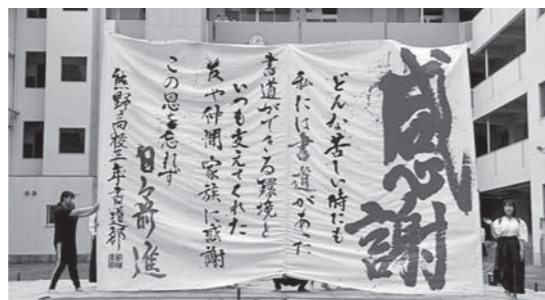 感謝
どんな苦しい時にも
私には書道があった
書道ができる環境と
いつも支えてくれた
友や仲間家族に感謝
この思を忘れず
日々前進
熊野高校三年書道部